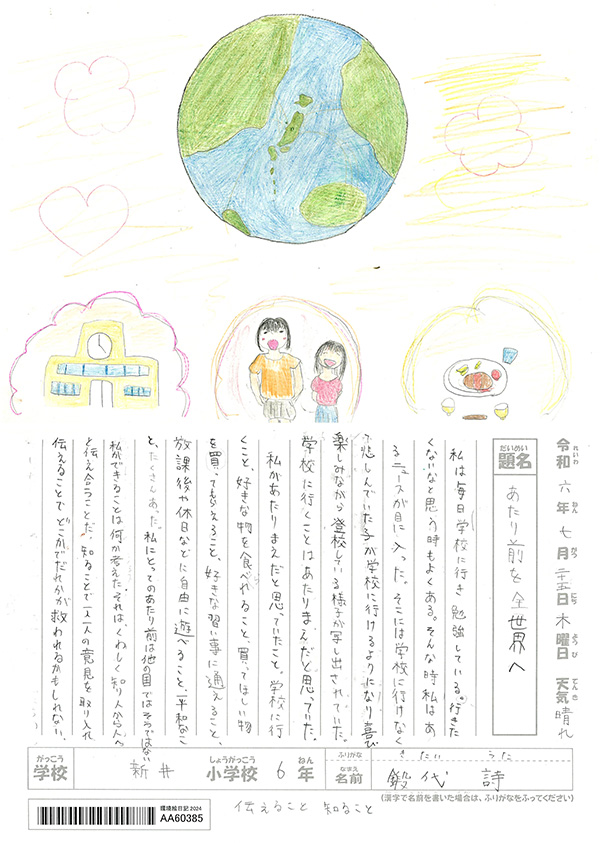 令和六年七月二五日木曜日 天気 晴れ
れいわ ねん がつ にち ようび てんき
だいめい
題名
あたり前を全世界へ
私は毎日学校に行き勉強している。行きた
くないなと思う時もよくある。そんな時私はあ
るニュースが目に入った。そこには学校に行けなく
て悲しんでいた子が学校に行けるようになり喜び
楽しみながら登校している様子が写し出されていた。
学校に行くことはあたりまえだと思っていた。
私があたりまえだと思っていたこと。学校に行
くこと、好きな物を食べれること、買ってほしい物
を買ってもらえること、好きな習い事に通えること、
放課後や休日などに自由に遊べること、平和なこ
と、たくさんあった。私にとってのあたり前は他の国ではそうではない
私ができることは何か考えた。それは、くわしく知り人から人へ
と伝え合うことだ。知ることで一人一人の意見を取り入れ
伝えることでどこかでだれかが救われるかもしれない。
がっこう
学校
新井
しょうがっこう ねん
小学校 6年
ふりがな
たい うた
なまえ
名前
鍛代 詩
(漢字で名前を書いた場合は、ふりがなをふってください)
環境絵日記2024
AA60385
伝えること 知ること